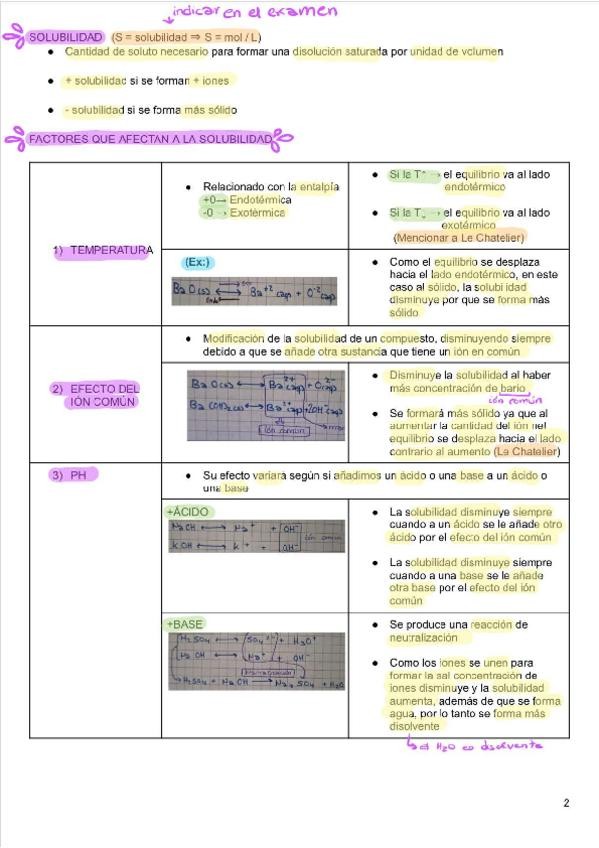 indicar en el examen
SOLUBILIDAD (S = solubilidad ⇒ S = mol / L)
● Cantidad de soluto necesario para formar una disolución saturada por unidad de volumen
● + solubilidad si se forman + iones
● - solubilidad si se forma más sólido
FACTORES QUE AFECTAN A LA SOLUBILIDAD
1) TEMPERATURA
● Relacionado con la entalpía
+0→ Endotérmica
-0 → Exotérmica
● Si la T↑ → el equilibrio va al lado
endotérmico
● Si la T↓ → el equilibrio va al lado
exotérmico
(Mencionar a Le Chatelier)
(Ex:)
BaO(s) ⟷ Ba+2(aq) + O-2(aq)
● Como el equilibrio se desplaza
hacia el lado endotérmico, en este
caso al sólido, la solubilidad
disminuye por que se forma más
sólido
2) EFECTO DEL
IÓN COMÚN
● Modificación de la solubilidad de un compuesto, disminuyendo siempre
debido a que se añade otra sustancia que tiene un ión en común
BaO(s) ⟷ Ba2+(aq) + O2-(aq)
Ba(OH)2(s) ⟷ Ba2+(aq) + 2OH-(aq)
ión común
● Disminuye la solubilidad al haber
más concentración de bario
ión común
● Se formará más sólido ya que al
aumentar la cantidad del ión nel
equilibrio se desplaza hacia el lado
contrario al aumento (Le Chatelier)
3) PH
● Su efecto variará según si añadimos un ácido o una base a un ácido o
una base
+ÁCIDO
NaOH ⟷ Na+ + OH-
KOH ⟷ K+ + OH-
ión común
● La solubilidad disminuye siempre
cuando a un ácido se le añade otro
ácido por el efecto del ión común
● La solubilidad disminuye siempre
cuando a una base se le añade
otra base por el efecto del ión
común
+BASE
H2SO4 ⟷ SO4 2- + H3O+
NaOH ⟷ Na+ + OH-
H2SO4 + NaOH → Na2SO4 + H2O
● Se produce una reacción de
neutralización
● Como los iones se unen para
formar la sal concentración de
iones disminuye y la solubilidad
aumenta, además de que se forma
agua, por lo tanto se forma más
disolvente
↳ el H2O es disolvente
2